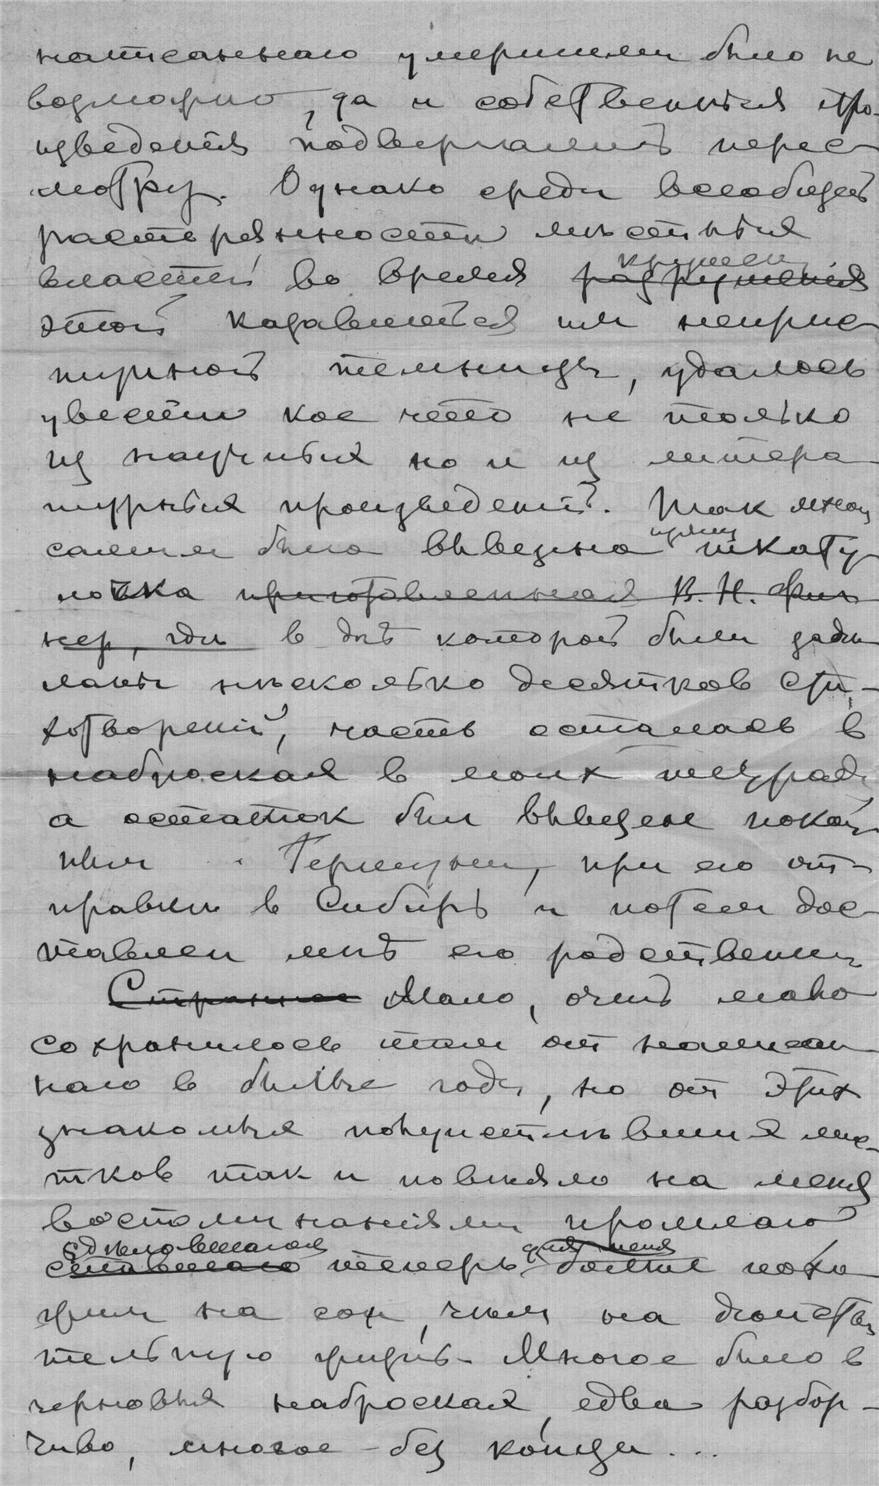 написаннаго умершими было не
возможно, да и собственныя про-
изведения подвергались перес-
мотру. Однако среди всеобщей
растерянности мѣстныя
властей во время крушения разрушения
этой казавшейся им неприс
тупной темницы, удалось
увести кое что не только
из научных но и из литера
турных произведений. Так мною
самим была вывезена шкату
лочка приготовленная В. Н. Фиг
нер, гдѣ в днѣ которой были задѣ
ланы нѣсколько десятков сти-
хотворений, часть осталась в
набросках в моих тетрадя
а остаток был вывезен покой
ным Гершуни, при его от-
правки в Сибирь и потом дос
тавлен мнѣ его родственни
Странное Мало, очень мало
сохранилось там от написан
наго в былые годы, но от этих
знакомых попустѣвших лис-
тков так и повѣяло на меня
воспоминаниями прошлаго
сдѣлавшагося для меня
ставшаго теперь болѣе похо
жим на сон, чѣм на действи
тельную жизнь. Многое было в
черновых набросках, едва разбор-
чиво, многое - без конца...